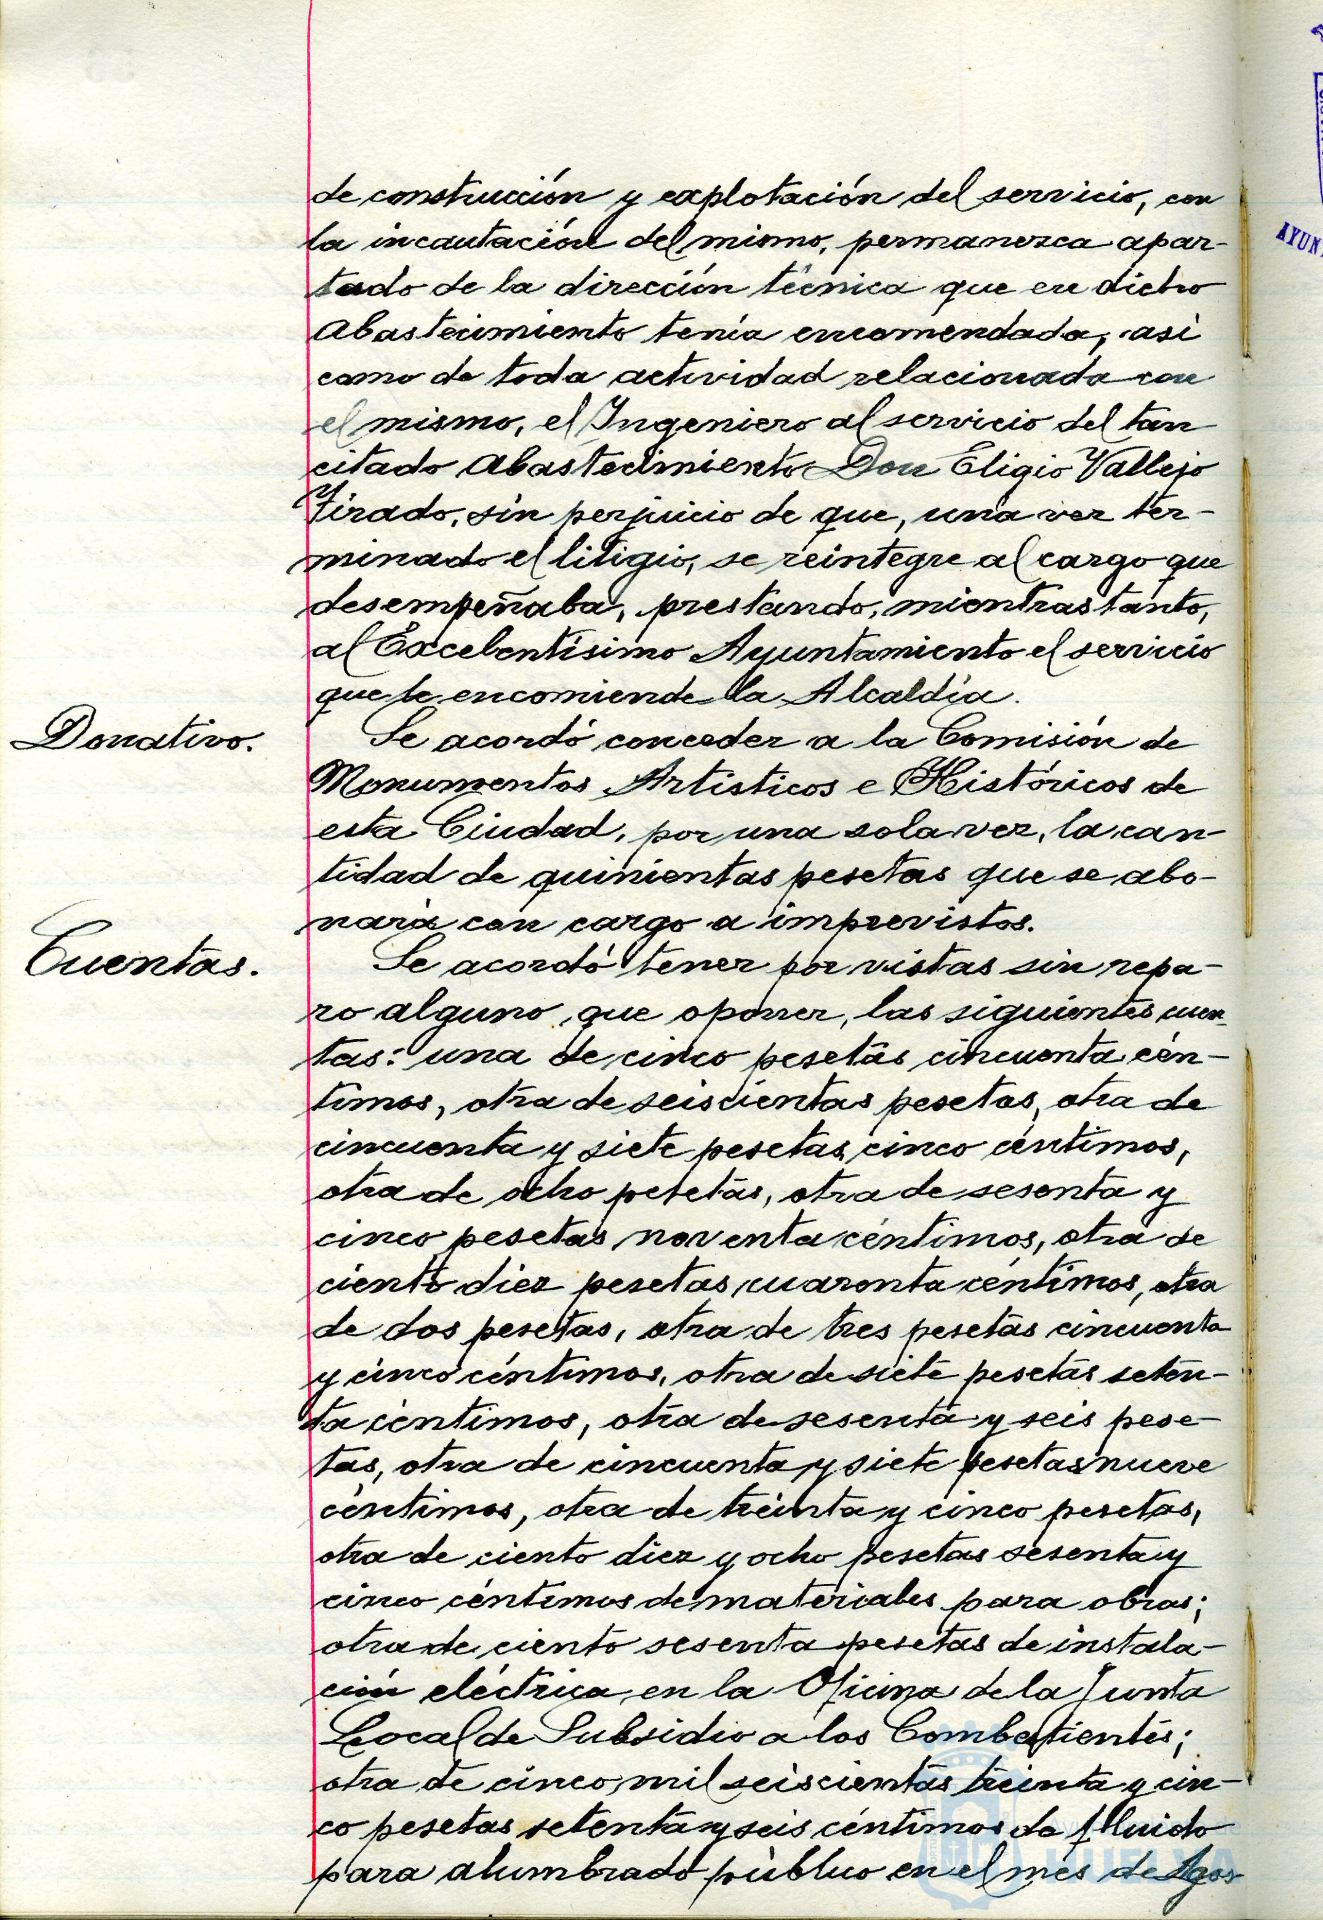 de construcción y explotación del servicio, con
la incautación del mismo, permanezca apar-
tado de la dirección técnica que en dicho
Abastecimiento tenía encomendada, así
como de toda actividad relacionada con
el mismo, el Ingeniero al servicio del tan
citado Abastecimiento Don Eligio Vallejo
Tirado, sin perjuicio de que, una vez ter-
minado el litigio, se reintegre al cargo que
desempeñaba, prestando, mientras tanto,
al Excelentísimo Ayuntamiento el servicio
que le encomiende la Alcaldía.
Donativo.
Se acordó conceder a la Comisión de
Monumentos Artísticos e Históricos de
esta Ciudad, por una sola vez, la can-
tidad de quinientas pesetas que se abo-
nará con cargo a imprevistos.
Cuentas.
Se acordó tener por vistas sin repa-
ro alguno que oponer, las siguientes cuen-
tas: una de cinco pesetas cincuenta cén-
timos, otra de seiscientas pesetas, otra de
cincuenta y siete pesetas cinco céntimos,
otra de ocho pesetas, otra de sesenta y
cinco pesetas noventa céntimos, otra de
ciento diez pesetas cuarenta céntimos, otra
de dos pesetas, otra de tres pesetas cincuenta
y cinco céntimos, otra de siete pesetas seten-
ta céntimos, otra de sesenta y seis pese-
tas, otra de cincuenta y siete pesetas nueve
céntimos, otra de treinta y cinco pesetas,
otra de ciento diez y ocho pesetas sesenta y
cinco céntimos de materiales para obras;
otra de ciento sesenta pesetas de instala-
ción eléctrica en la Oficina de la Junta
Local de Subsidio a los Combatientes;
otra de cinco mil seiscientas treinta y cin-
co pesetas setenta y seis céntimos de flluido
para alumbrado público en el mes de Agos
HUELVA
AYUN